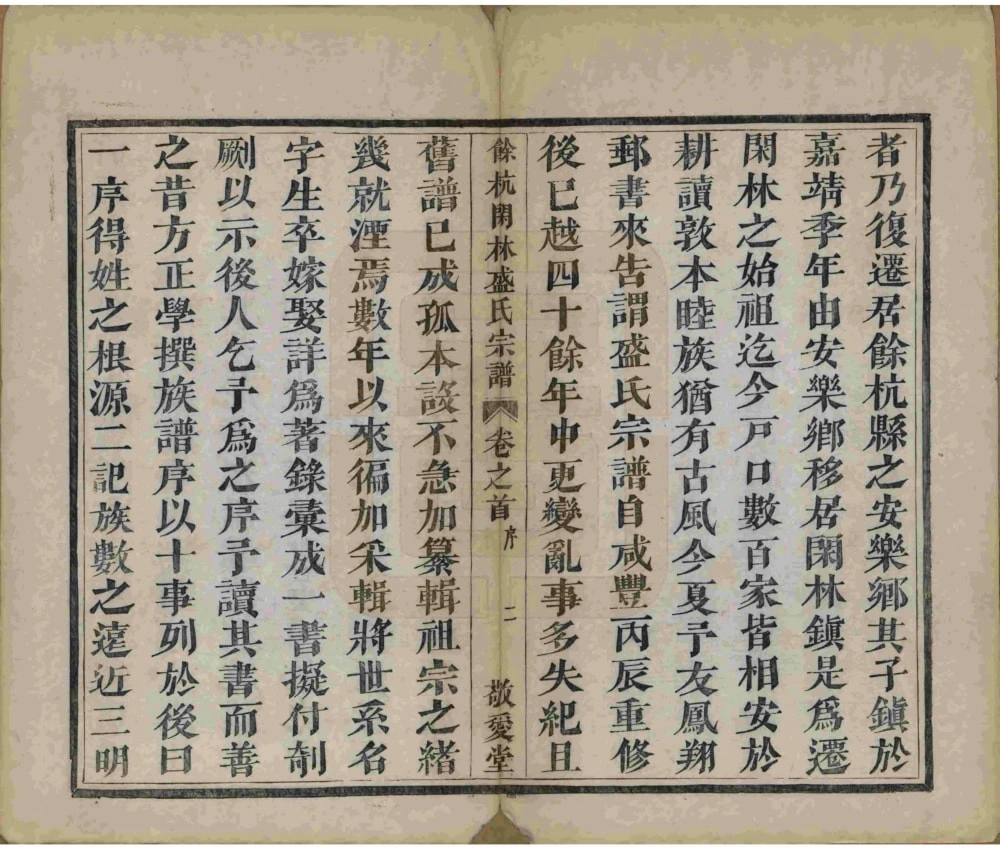 者乃復遷居餘杭縣之安樂鄉其子鎭於
嘉靖季年由安樂鄉移居閑林鎭是爲遷
閑林之始祖迄今戸口數百家皆相安於
耕讀敦本睦族猶有古風今夏予友鳳翔
郵書來告謂盛氏宗譜自咸豐丙辰重修
後已越四十餘年中更變亂事多失紀且
餘杭閑林盛氏宗譜 卷之首 序 二 敬愛堂
舊譜已成孤本設不急加纂輯祖宗之緒
幾就湮焉數年以來徧加采輯將世系名
字生卒嫁娶詳爲著錄彙成一書擬付剞
劂以示後人乞予爲之序予讀其書而善
之昔方正學撰族譜序以十事列於後曰
一序得姓之根源二記族數之遠近三明